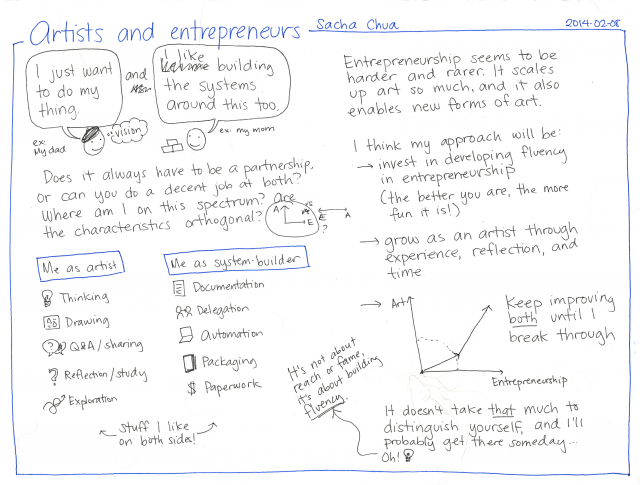 Artists and entrepreneurs
Sacha Chua
2014-02-08
I just want
to do my
thing.
and
I like
building
the systems
around this too.
ex:
My dad
vision
ex: my mom
Does it always have to be a partnership,
or can you do a decent job at both?
Where am I on this spectrum? are
the characteristics orthogonal?
A
E
A
E
A
?
Me as artist
Thinking
Drawing
Q&A/sharing
Reflection/study
Exploration
Me as system-builder
Documentation
Delegation
Automation
Packaging
$ Paperwork
stuff I like
on both sides!
Entrepreneurship seems to be
harder and rarer. It scales
up art so much, and it also
enables new forms of art.
I think my approach will be:
→ invest in developing fluency
in entrepreneurship
(the better you are, the more
fun it is!)
→ grow as an artist through
experience, reflection, and
time
→ Art
Entrepreneurship
Keep improving
both until I
break through
It's not about
reach or fame,
it's about building
fluency.
It doesn't take that much to
distinguish yourself, and I'll
probably get there someday...
Oh!